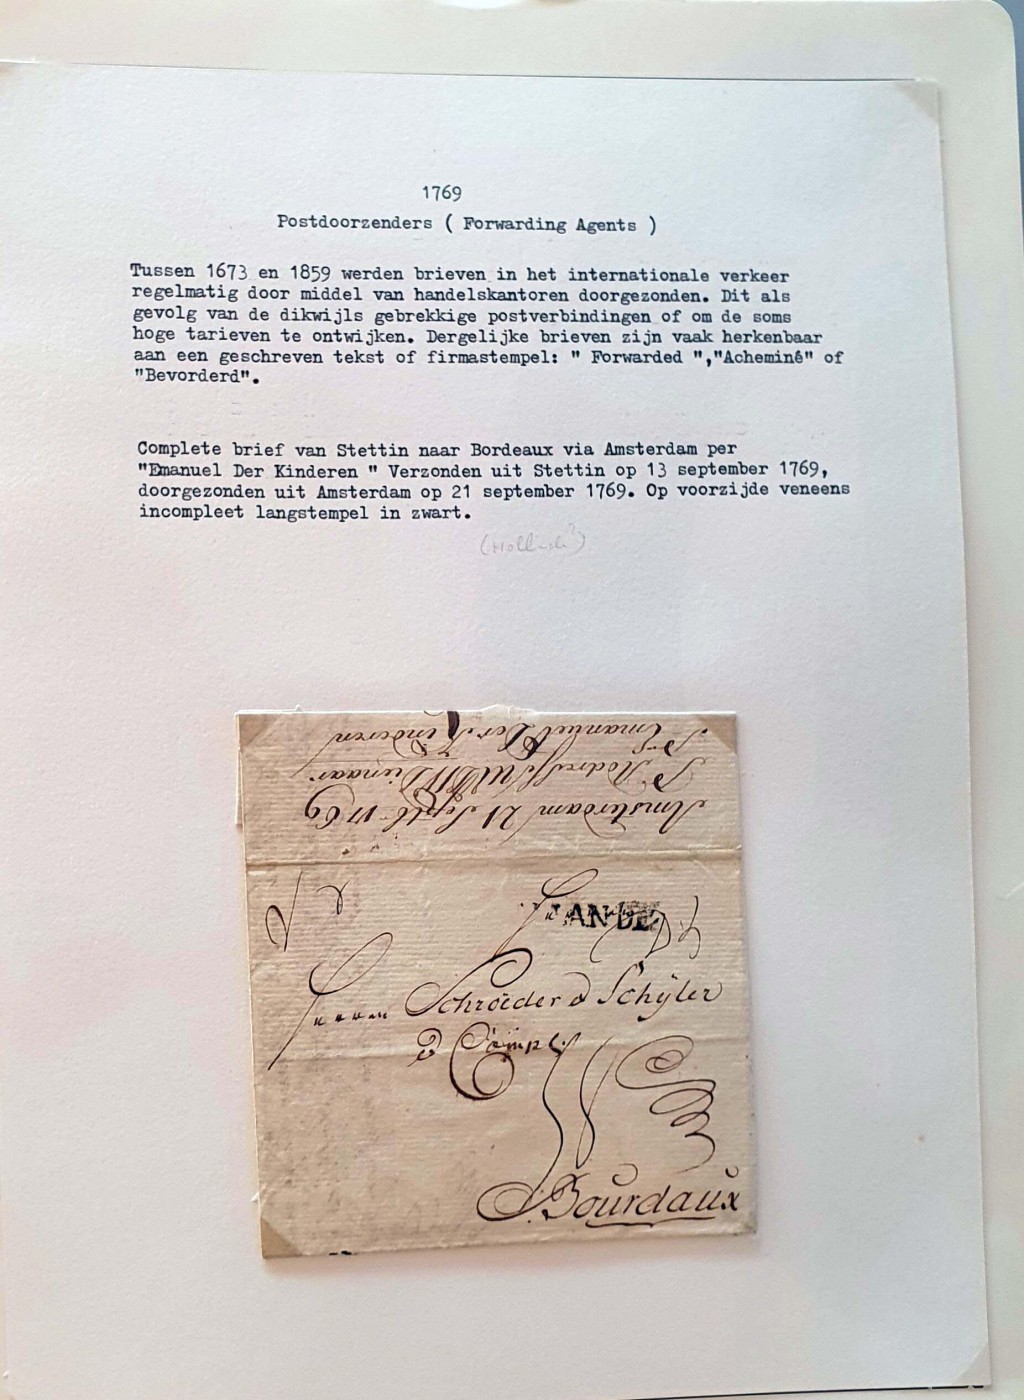 1769
Postdoorzenders ( Forwarding Agents )
Tussen 1673 en 1859 werden brieven in het internationale verkeer
regelmatig door middel van handelskantoren doorgezonden. Dit als
gevolg van de dikwijls gebrekkige postverbindingen of om de soms
hoge tarieven te ontwijken. Dergelijke brieven zijn vaak herkenbaar
aan een geschreven tekst of firmastempel: " Forwarded ","Acheminé" of
"Bevorderd".
Complete brief van Stettin naar Bordeaux via Amsterdam per
"Emanuel Der Kinderen " Verzonden uit Stettin op 13 september 1769,
doorgezonden uit Amsterdam op 21 september 1769. Op voorzijde veneens
incompleet langstempel in zwart.
Amsterdam 21 Septb 1769
Emanuel Der Kinderen
ANDE
Herrn Schröeder & Schÿler
& Comp
Bourdaux